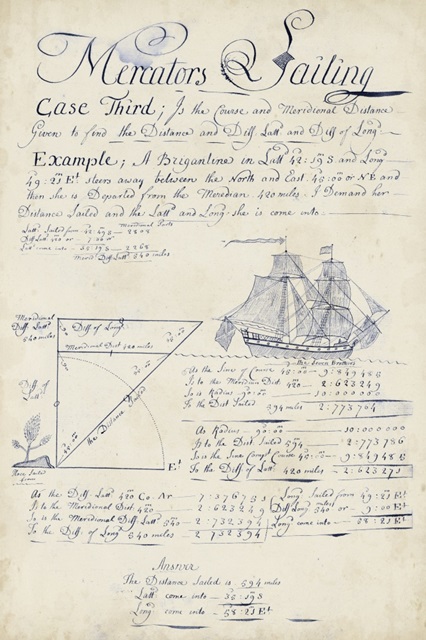 Mercators Sailing
Case Third; Is the Course and Meridional Distance
Given to find the Distance and Diff Latt and Diff of Long
Example; A Brigantine in Latt 42:19 S and Long
49:21 Et steers away between the North and East 45:00 or NE and
then she is Departed from the Meredian 420 miles I Demand her
Distance Sailed and the Latt and Long she is come into
Meridional Parts
Latt Sailed from 42:19 S — 2808
Diff Latt 420 or 7:00
Latt come into — 35:19 S — 2268
Merid Diff Latt 540 miles
Meridional
Diff Latt
540 miles
Diff of Long
Meridional Dist 420 miles
Diff of
Latt
the Distance Sailed
Et
Sailed
from
As the Sine of Course 45:00 — 9:849485
Is to the Meridion Dist 420 — 2:623249
So is Radius 90:00 — 10:000000
To the Dist Sailed 594 miles 2:773764
As Radius — 90:00 — 10:000000
Is to the Dist Sailed 594 — 2:773786
So is the Sine Comp Course 45:00 — 9:849485
To the Diff of Latt 420 miles — 2:623271
As the Diff Latt 420 Co. Ar — 7:376751
Is to the Meridional Dist 420 — 2:623249
So is the Meridional Diff Latt 540 — 2:732394
To the Diff of Long 540 miles — 2:732394
Long Sailed from — 49:21 Et
Diff Long 540 or — 9:00 Et
Long come into — 58:21 Et
Answer
The Distance Sailed is 594 miles
Latt come into — 35:19 S
Long come into — 58:21 Et